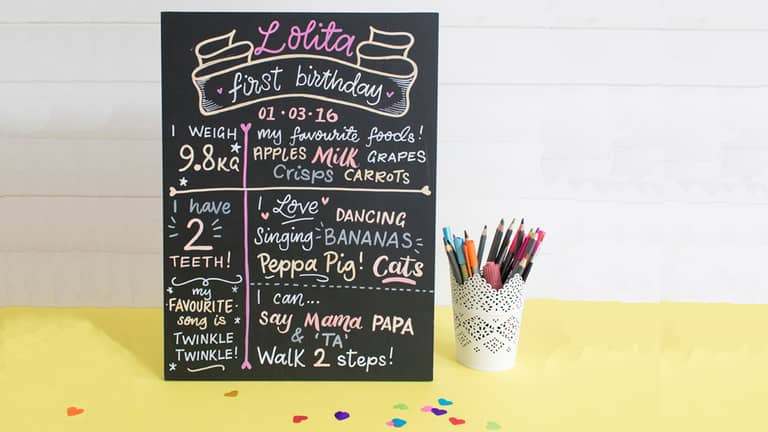 Lolita
first birthday
01·03·16
I WEIGH
9.8KG
my favourite foods!
APPLES Milk GRAPES
Crisps CARROTS
I have
2
TEETH!
I Love DANCING
Singing BANANAS
Peppa Pig! Cats
my
FAVOURITE
song is
TWINKLE
TWINKLE!
I can...
Say Mama PAPA
& 'TA'
Walk 2 steps!